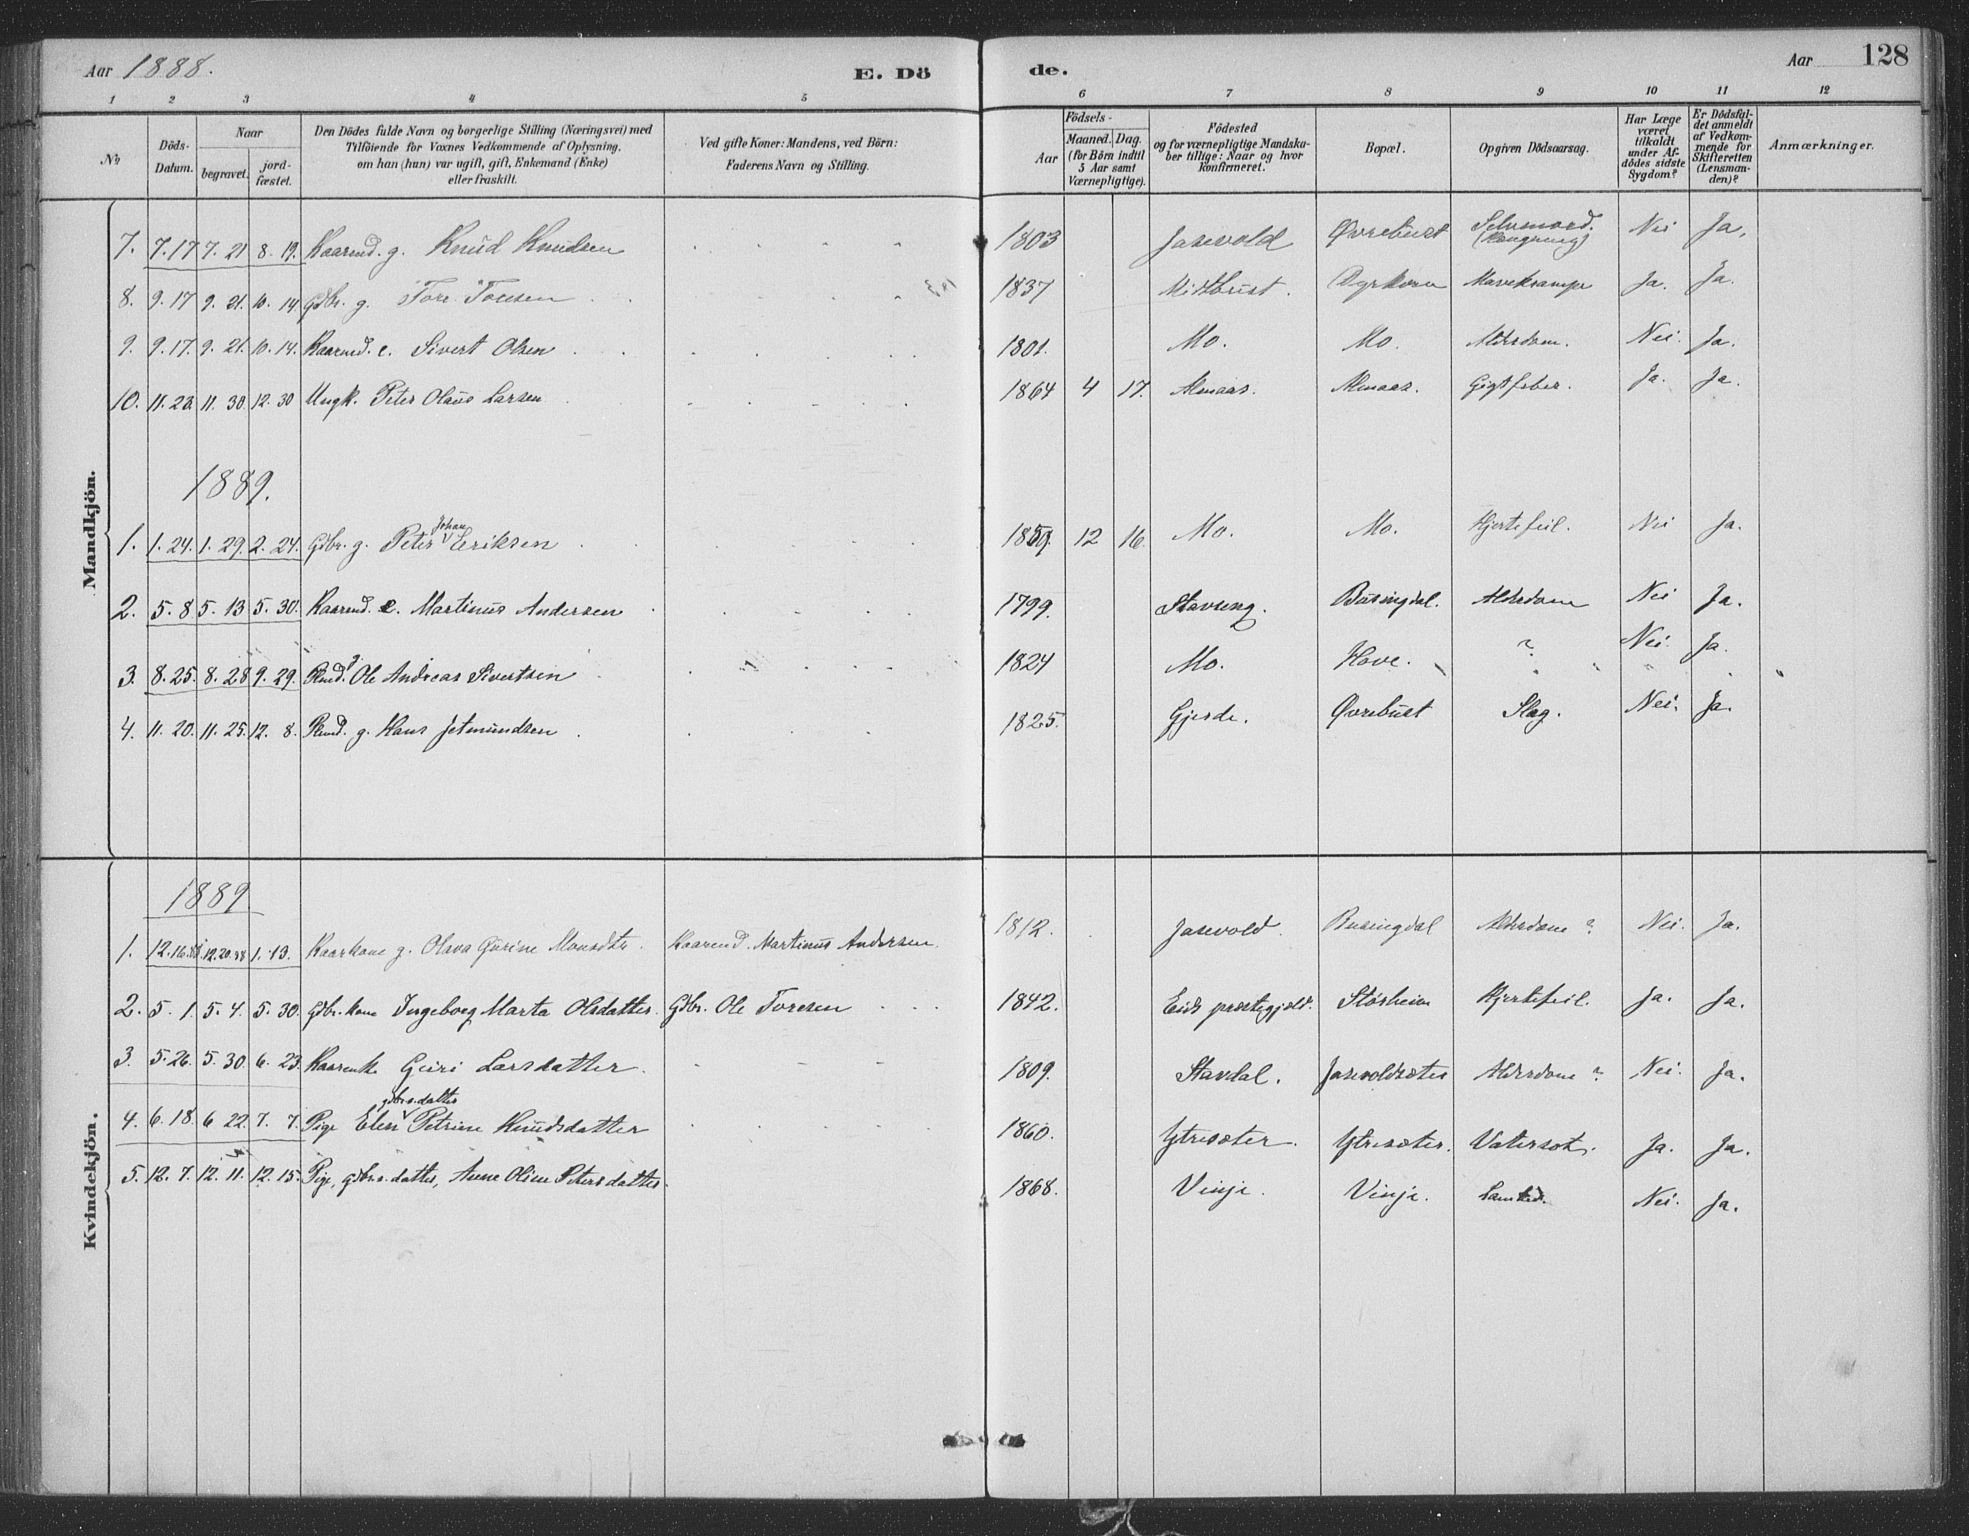 Aar 1888. E. Dö de. Aar 128
1 2 3 4 5 6 7 8 9 10 11 12
No
Döds-Datum.
Naar
begravet.
jord-fæstet.
Den Dödes fulde Navn og borgerlige Stilling (Næringsvei) med
Tilföiende for Voxnes Vedkommende af Oplysning,
om han (hun) var ugift, gift, Enkemand (Enke)
eller fraskilt.
Ved gifte Koner: Mandens, ved Börn:
Faderens Navn og Stilling.
Födsels-
Aar
Maaned. Dag.
(for Börn indtil
3 Aar samt
Værnepligtige).
Födested
og for værnepligtige Mandska-
ber tillige: Naar og hvor
konfirmeret.
Bopæl.
Opgiven Dödsaarsag.
Har Læge
været
tilkaldt
under Af-
dödes sidste
Sygdom?
Er Dödsfal-
det anmeldt
af Vedkom-
mende for
Skifteretten
(Lensman-
den)?
Anmærkninger.
Mandkjön.
7. 7.17 7.21 8.19. Kaarmd. g. Knud Knudsen 1803 Jasevold Øvrebust Selvmord. (Hængning) Nei Ja.
8. 9.17 9.21. 10.14. Gdbr. g. Tore Toresen 1837 Mittbust. Dyrkorn Mavekrampe Ja. Ja.
9. 9.17. 9.21. 10.14. Kaarmd. e. Sivert Olsen 1801. Mo. Mo. Alderdom. Nei. Ja.
10. 11.23. 11.30. 12.30 Ungk. Peter Olaus Larsen 1864 4 17. Almaas. Almaas. Gigtfeber. Ja. Ja.
1889.
1. 1.24. 1.29. 2.24. Gdbr. g. Peter Johan Eriksen 1859. 12 16. Mo. Mo. Hjertefeil. Nei Ja.
2. 5.8 5.13 5.30. Kaarmd. e. Martinus Andersen 1799. Stavseng. Busingdal. Alderdom Nei Ja.
3. 8.25. 8.28 9.29. Plmd. g Ole Andreas Sivertsen 1824 Mo. Hove. ? Nei. Ja.
4. 11.20. 11.25. 12.8. Plmd. g. Hans Jetmundsen 1825. Gjerde. Øvrebust Slag. Nei. Ja.
Kvindekjön.
1889
1. 12.16.88 12.20.88 1.13. Kaarkone g. Olava Gurine Monsdtr. Kaarmd. Martinus Andersen. 1812. Jasevold. Busingdal Alderdom ? Nei. Ja.
2. 5.1. 5.4. 5.30. Gdbr.kone Ingeborg Marta Olsdatter. Gdbr. Ole Toresen 1842. Eids præstegjæld. Störheim Hjertefeil. Ja. Ja.
3 5.26. 5.30. 6.23. Kaarenke Guri Larsdatter 1809. Stavdal. Jasevoldsæter Alderdom ? Nei. Ja.
4. 6.18. 6.22. 7.7. Pige Elen gdbrs.datter Petrine Knudsdatter 1860. Ytresæter. Ytresæter. Vatersot. Ja. Ja.
5. 12.7. 12.11. 12.15. Pige, gdbrs.datter, Anne Oline Petersdatter. 1868. Vinje. Vinje. Nei. Ja.